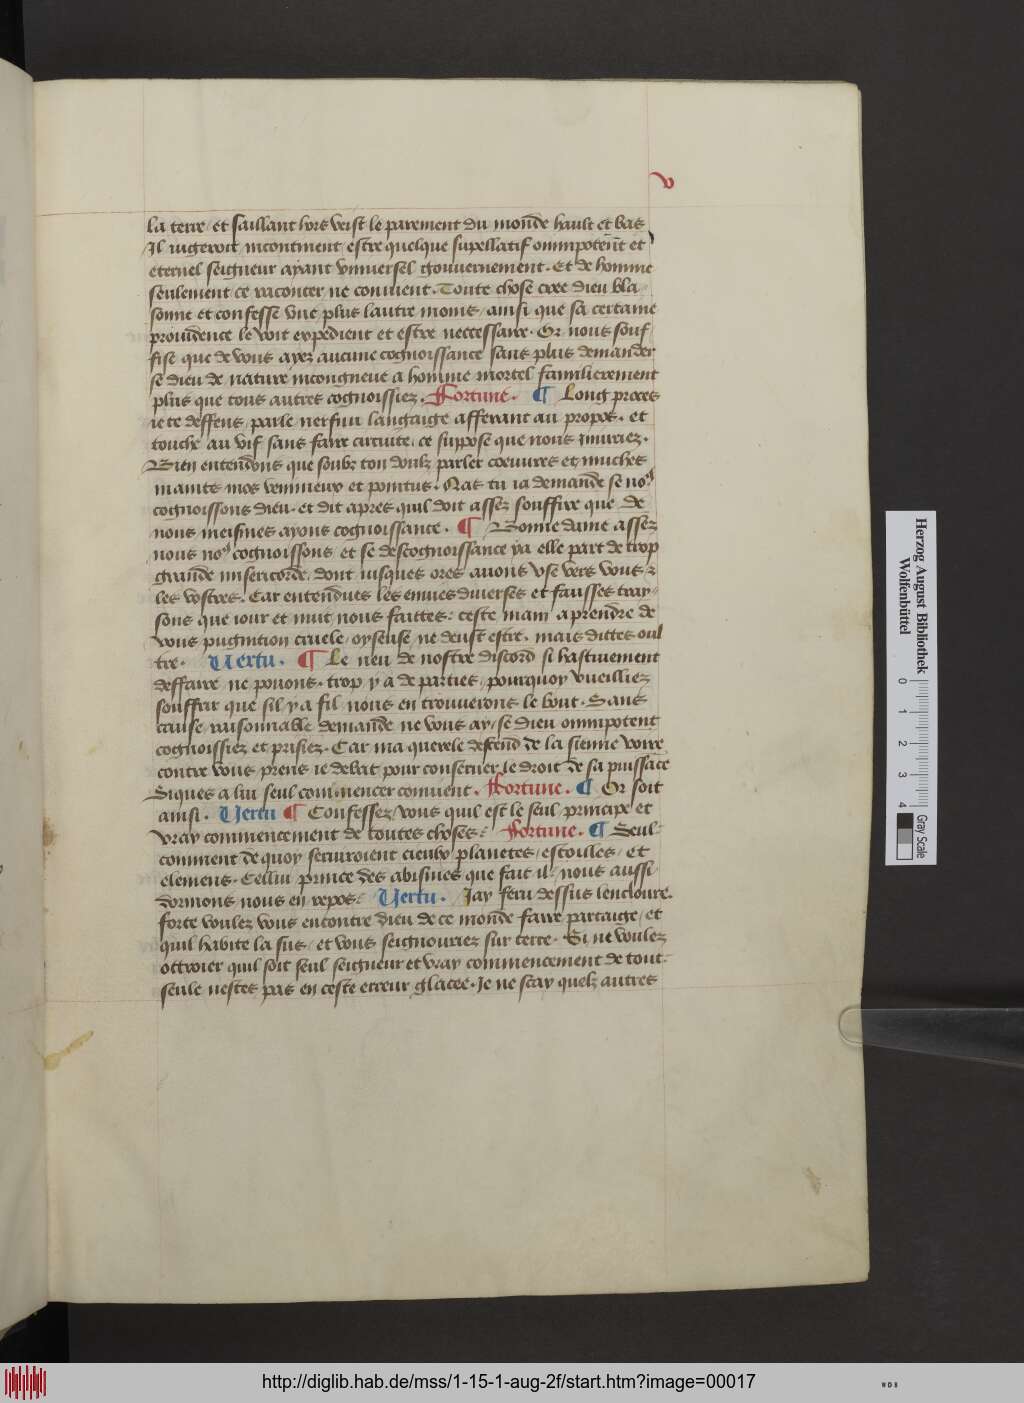 v
la terre / et saillant hors veist le parement du monde hault et bas
Il iugeroit incontinent estre quelque supellatif omnipotent et
eternel seigneur ayant vniuersel gouuernement. Et de homme
seulement ce raconter ne conuient. Toute chose cree dieu bla
sonne et confesse vne plus lautre moins / ainsi que sa certaine
prouidence le voit expedient et estre neccessaire. Or nous souf
fise que de vous ayez aucune cognoissance sans plus demander
se dieu de nature incongneue a homme mortel familierement
plus que tous autres cognoissiez. Fortune. ¶ Long proces
ie te deffens / parle net fuu langaige afferant au propos. et
touche au vif sans faire circuite / ce suppose que nous iniuriez.
Bien entendons que soubz ton doulz parler coeuures et muches
maints mos venimeux et pointus. Mas tu ia demande se no9
cognoissons dieu. et dit apres quil doit assez souffire que de
nous meismes ayons cognoissance. ¶ Bonne dame assez
nous no9 cognoissons et se descognoissance ya elle part de trop
grande misericorde / dont iusques ores auons vse vers vous z
les vostres. Car entendues les enuies diuerses et fausses tray
sons que iour et nuit nous faittes: ceste main a prendre de
vous pugnition cruele / oyseuse ne deust estre. mais dittes oul
tre. Vertu. ¶ Le neu de nostre discord si hastiuement
deffaire ne pouons. trop y a de parties / pourquoy vueilliez
souffrir que sil y a fil / nous en trouuerons le bout. Sans
cause raisonnable demande ne vous ay / se dieu omnipotent
cognoissiez et prisiez. Car ma querele descend de la sienne voire
contre vous prens ie debat pour conseruer le droit de sa puissace
Siques a lui seul commencer conuient. Fortune. ¶ Or soit
ainsi. Vertu ¶ Confessez vous quil est le seul principe et
vray commencement de toutes choses: Fortune. ¶ Seul:
comment de quoy seruiroient cieulx planetes / estoilles / et
elemens. Cellui prince des abismes que fait il: nous aussi
dormons nous en repos: Vertu. Jay feru dessus lencloure.
forte voulez vous encontre dieu de ce monde faire partaige / et
quil habite la sus / et vous seignouriez sur terre. Si ne voulez
ottroier quil soit seul seigneur et vray commencement de tout:
seule nestes pas en ceste erreur glacee. Je ne scay quelz autres
Herzog August Bibliothek
Wolfenbüttel
0 1 2 3 4
Gray Scale
http://diglib.hab.de/mss/1-15-1-aug-2f/start.htm?image=00017
WDB